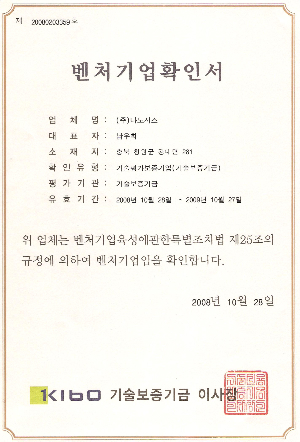 제 20080203659 호
벤처기업확인서
업 체 명 : (주)나노시스
대 표 자 :
소 재 지 : 충북 청원군 281
확 인 유 형 : 기술평가보증기업(기술보증기금)
평 가 기 관 : 기술보증기금
유 효 기 간 : 2008년 10월 28일 ~ 2009년 10월 27일
위 업체는 벤처기업육성에관한특별조치법 제25조의
규정에 의하여 벤처기업임을 확인합니다.
2008년 10월 28일
KIBO 기술보증기금 이사장